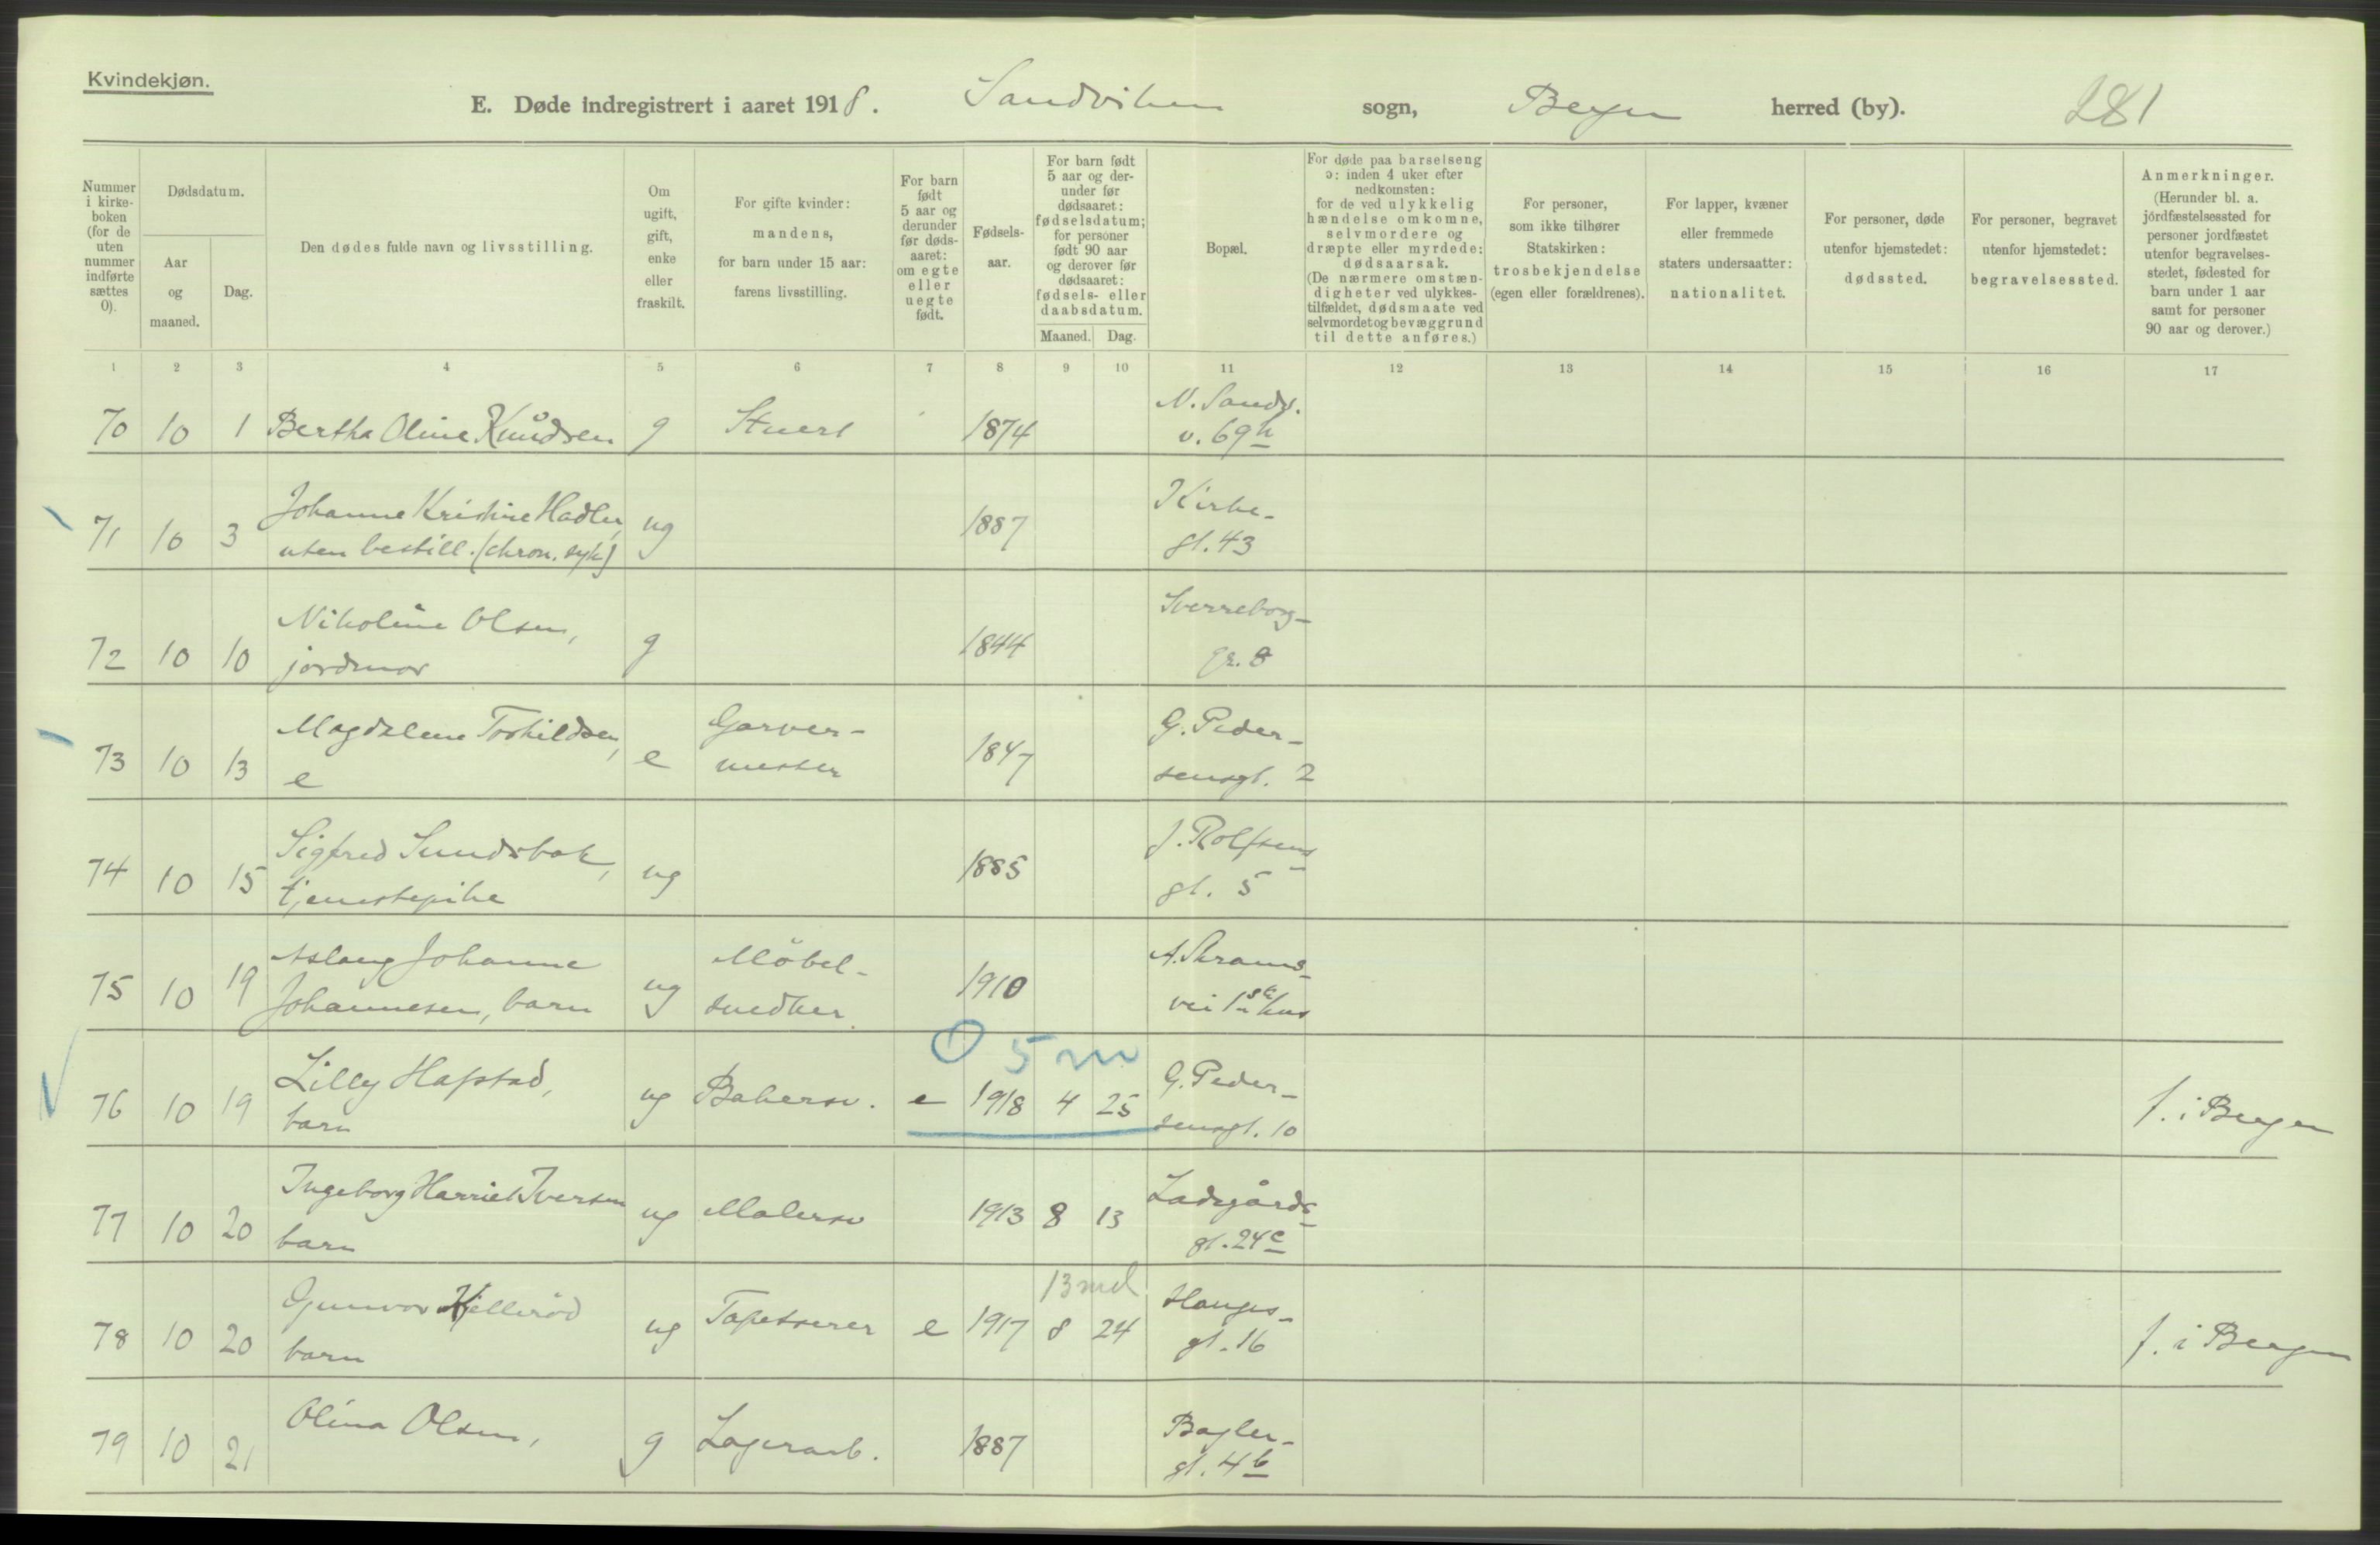 Kvindekjøn.
E. Døde indregistrert i aaret 1918. Sandviken sogn, Bergen herred (by). 281
Nummer i kirkeboken (for de uten nummer indførte sættes 0).
Dødsdatum.
Aar og maaned.
Dag.
Den dødes fulde navn og livsstilling.
Om ugift, gift, enke eller fraskilt.
For gifte kvinder: mandens, for barn under 15 aar: farens livsstilling.
For barn født 5 aar og derunder før dødsaaret: om egte eller uegte født.
Fødselsaar.
For barn født 5 aar og derunder før dødsaaret: fødselsdatum; for personer født 90 aar og derover før dødsaaret: fødsels- eller daabsdatum.
Maaned. Dag.
Bopæl.
For døde paa barselseng ɔ: inden 4 uker efter nedkomsten: for de ved ulykkelig hændelse omkomne, selvmordere og dræpte eller myrdede: dødsaarsak. (De nærmere omstændigheter ved ulykkestilfældet, dødsmaate ved selvmordet og bevæggrund til dette anføres.)
For personer, som ikke tilhører Statskirken: trosbekjendelse (egen eller forældrenes).
For lapper, kvæner eller fremmede staters undersaatter: nationalitet.
For personer, døde utenfor hjemstedet: dødssted.
For personer, begravet utenfor hjemstedet: begravelsessted.
Anmerkninger. (Herunder bl. a. jordfæstelsessted for personer jordfæstet utenfor begravelsesstedet, fødested for barn under 1 aar samt for personer 90 aar og derover.)
1 2 3 4 5 6 7 8 9 10 11 12 13 14 15 16 17
N. Sandv.
70 10 1 Bertha Oline Knudsen g Stuert 1874 v. 69 h
Johanne Kristine Hadler, Kirke-
71 10 3 uten bestill. (chron. syk) ug 1887 gt. 43
Nikoline Olsen, Sverreborg-
72 10 10 jordmor g 1844 gr. 8
Magdalene Torkildsen, Garver- G. Peder-
73 10 13 e e mester 1847 sensgt. 2
Sigfred Sundsbak, J. Rolfsens-
74 10 15 tjenestepike ug 1885 gt. 5
Aslaug Johanne Möbel- A. Skrams-
75 10 19 Johannesen, barn ug snedker 1910 vei 1ste hus
5 m
Lilly Hafstad, G. Peder-
76 10 19 barn ug Bakersv. e 1918 4 25 sensgt. 10 f. i Bergen
Ingeborg Harriet Iversen Ladegårds-
77 10 20 barn ug Malersv 1913 8 13 gt. 24 c
13 md
Gunvor Kjellerød Hauges-
78 10 20 barn ug Tapetserer e 1917 8 24 gt. 16 f. i Bergen
Olina Olsen, Bagler-
79 10 21 g Lagerarb. 1887 gt. 4 b